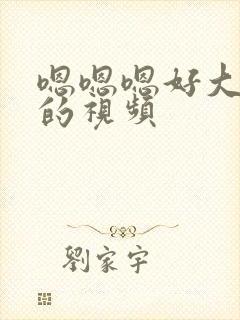 嗯嗯嗯好大
的視頻
劉家宇